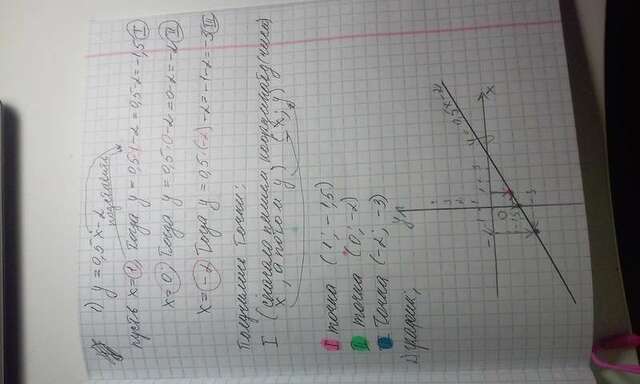 1) y = 0,5x - 2
подставить
пусть x = 1, Тогда y = 0,5·1-2 = 0,5-2 = -1,5 I
x = 0, Тогда y = 0,5·0-2 = 0-2 = -2 II
x = -2 Тогда y = 0,5·(-2)-2 = -1-2 = -3 III
Получились точки:
I (сначала пишем координату (числа)
x, а потом y) (x; y)
I точка (1; -1,5)
II точка (0; -2)
Точка (-2; -3)
график:
y
y = 0,5x-2
0
x
-1,5
-3